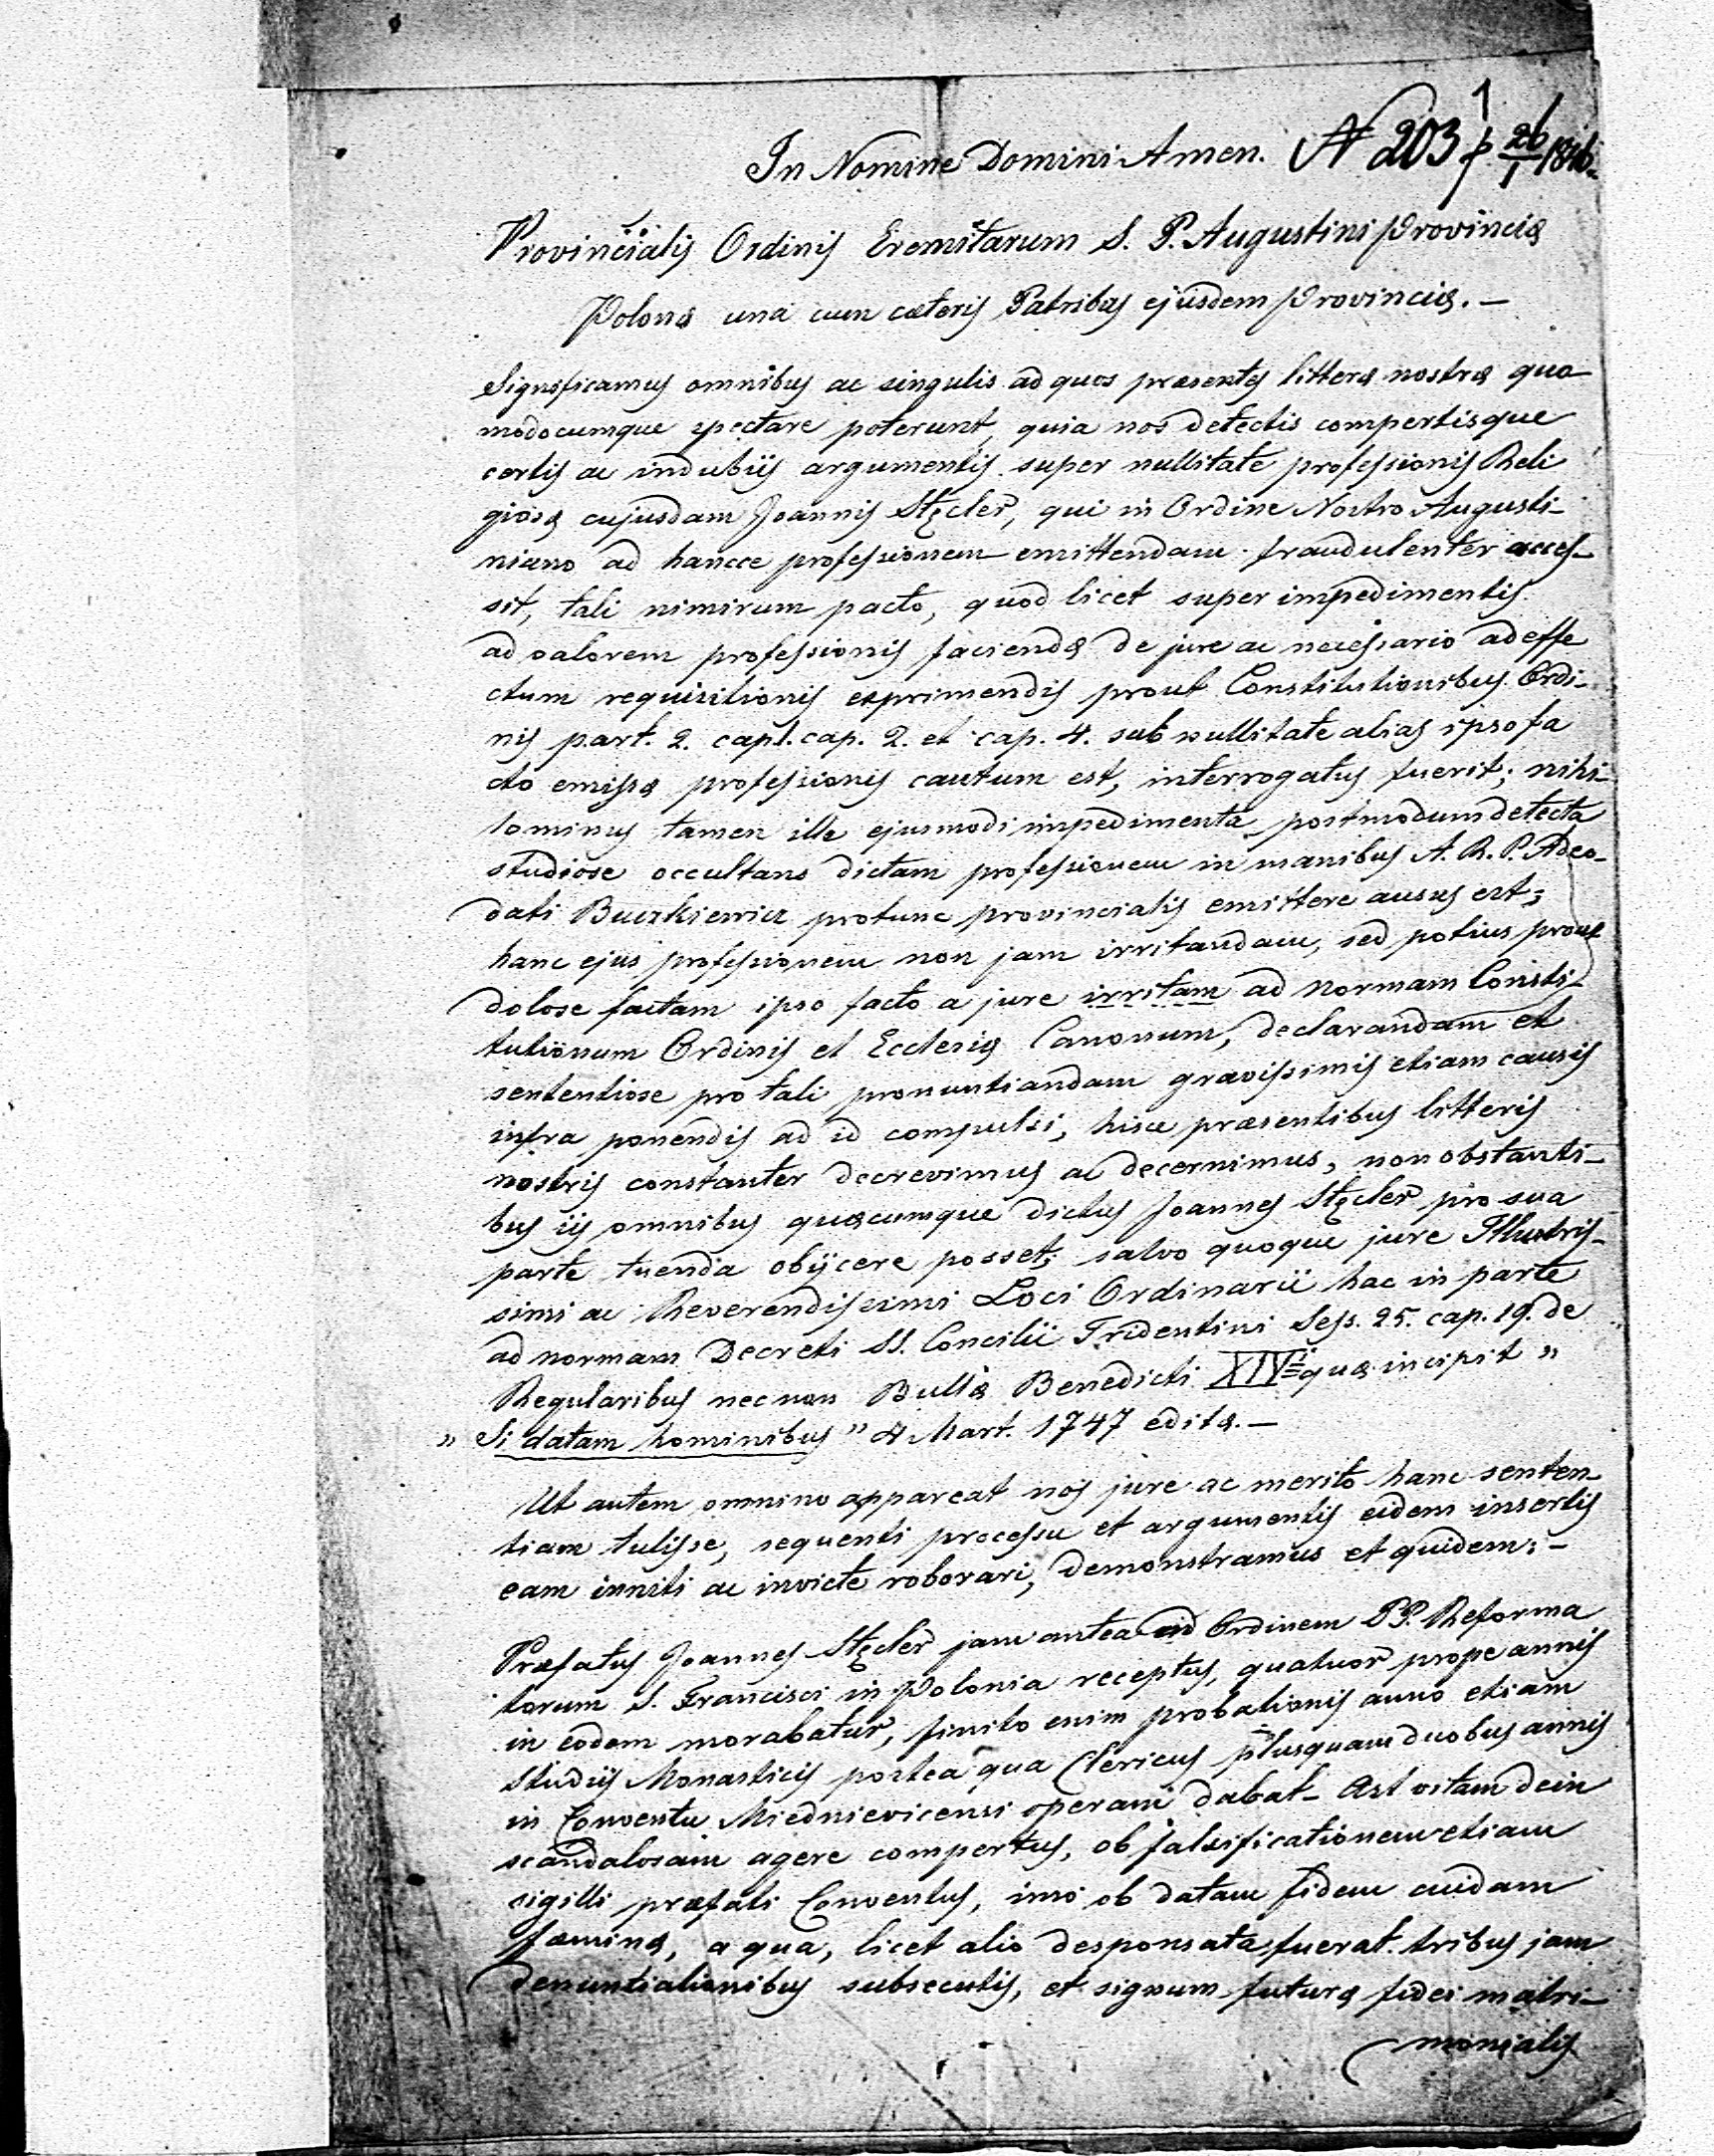 In Nomine Domini Amen. N 203 p 26/1 1846.
Provincialis Ordinis Eremitarum S. P. Augustini Provinciæ
Polonæ una cum cæteris Patribus ejusdem Provinciæ. —
Significamus omnibus ac singulis ad quos præsentes litteræ nostræ quo-
modocumque spectare poterunt, quia nos detectis compertisque
certis ac indubiis argumentis super nullitate professionis Reli
giosæ cujusdam Joannis Stęcler, qui in Ordine Nostro Augusti-
niano ad hancce professionem emittendam fraudulenter acces-
sit, tali nimirum pacto, quod licet super impedimentis
ad valorem professionis faciendæ de jure ac necessario ad effe
ctum requisitionis exprimendis prout Constitutionibus Ordi-
nis part. 2. cap 1. cap. 2. et cap. 4. sub nullitate alias ipso fa
cto emissæ professionis cautum est, interrogatus fuerit; nihi-
lominus tamen ille ejusmodi impedimenta postmodum detecta
studiose occultans dictam professionem in manibus A. R. P. Adeo-
dati Buczkiewicz protunc provincialis emittere ausus est;
hanc ejus professionem non jam irritandam, sed potius prout
dolose factam ipso facto a jure irritam ad normam Consti-
tutionum Ordinis et Ecclesiæ Canonum, declarandam et
sententiose pro tali pronuntiandam gravissimis etiam causis
infra ponendis ad id compulsi, hisce præsentibus litteris
nostris constanter decrevimus ac decernimus, non obstanti-
bus iis omnibus quæcumque dictus Joannes Stęcler pro sua
parte tuenda obijcere posset; salvo quoque jure Illustris-
simi ac Reverendissimi Loci Ordinarii hac in parte
ad normam Decreti SS. Concilii Tridentini Sess. 25. cap. 19. de
Regularibus necnon Bullæ Benedicti XIV i quæ incipit "
" Si datam hominibus " 4 Mart. 1747 editæ. —
Ut autem omnino appareat nos jure ac merito hanc senten-
tiam tulisse, sequenti processu et argumentis eidem insertis
eam inniti ac invicte roborari, demonstramus et quidem: -
Præfatus Joannes Stęcler jam antea ad Ordinem PP. Reforma
torum S. Francisci in Polonia receptus, quatuor prope annis
in eodem morabatur, finito enim probationis anno etiam
Studiis Monasticis postea qua Clericus plusquam duobus annis
in Conventu Miednievicensi operam dabat - Ast vitam dein
scandalosam agere compertus, ob falsificationem etiam
sigilli præfati Conventus, imo ob datam fidem cuidam
fæminæ, a qua, licet alio desponsata fuerat tribus jam
denuntiationibus subsecutis, et signum futuræ fidei matri-
monialis